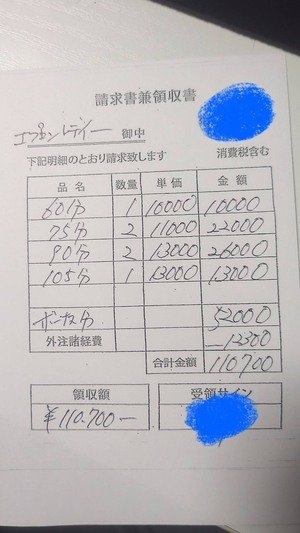 請求書兼領収書
御中
下記明細のとおり請求致します 消費税含む
品名 数量 単価 金額
60分 1 10000 10000
75分 2 11000 22000
90分 2 13000 26000
105分 1 13000 13000
52000
外注諸経費 -12300
合計金額 110700
領収額 受領サイン
¥110.700-